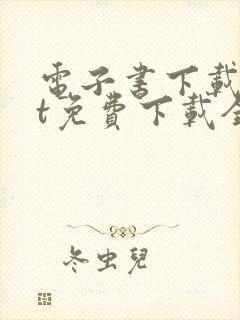 電子書下載
t免費下載全
冬虫兒